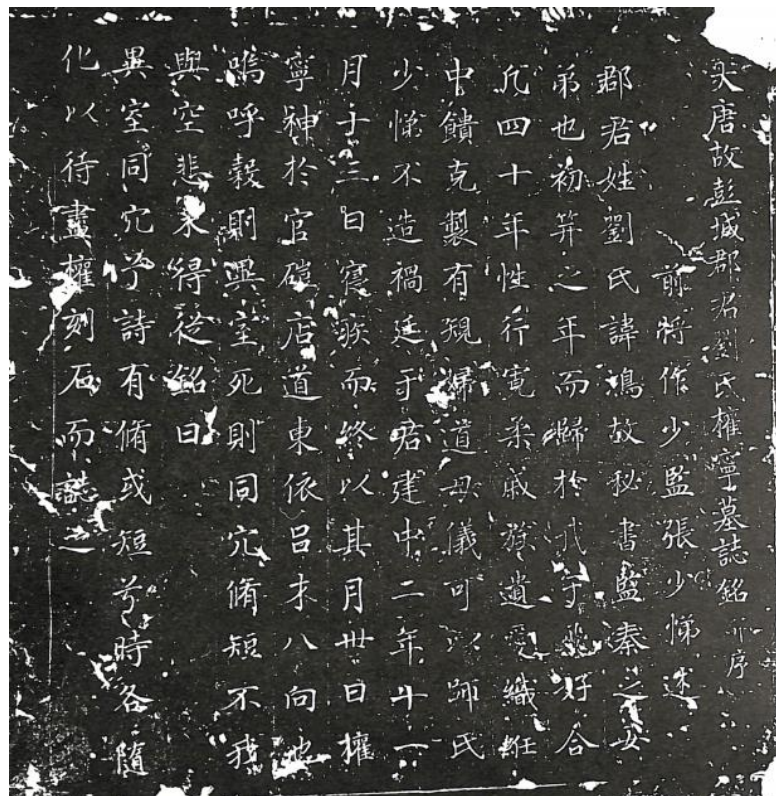 大唐故彭城郡君劉氏權寧墓誌銘并序
前將作少監張少悌述
郡君姓劉氏諱鴻故秘書監秦之女
弟也初笄之年而歸於我于茲好合
凡四十年性行寬柔戚發遺愛織紝
中饋克製有規婦道母儀可以師氏
少悌不造禍延于君建中二年十一
月十三日寢疾而終以其月卅日權
寧神於官磑店道東依呂才八向地
嗚呼穀則異室死則同穴脩短不我
與空悲未得從銘曰
異室同穴兮詩有脩或短兮時各隨
化以待盡權刻石而誌之